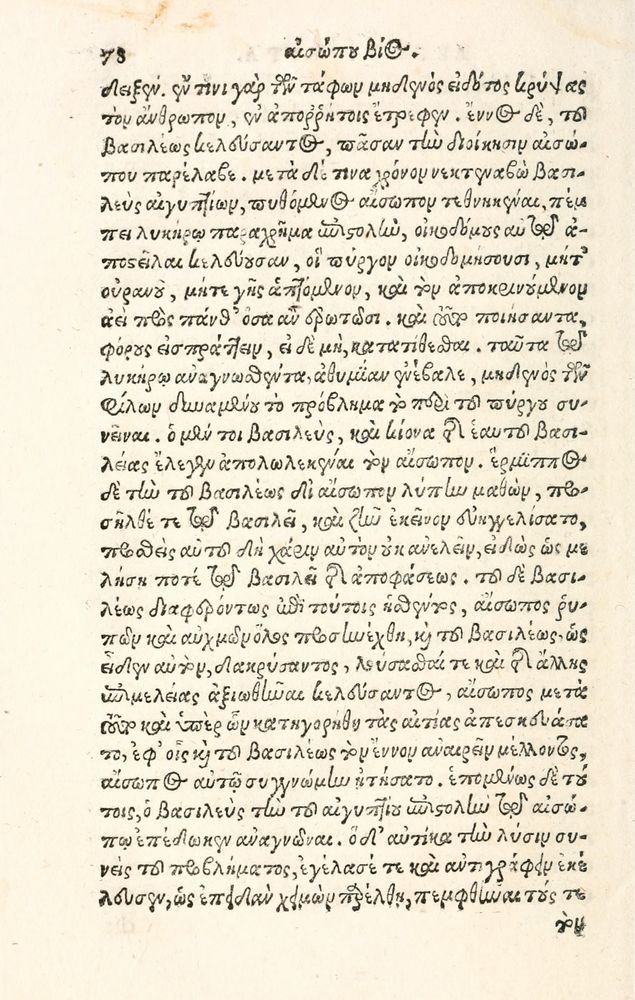 78 αἰσώπου βίος.
δειξεν. ἔν τινι γὰρ τῶν τάφων μηδενὸς εἰδότος κρύψας
τὸν ἄνθρωπον, ἐν ἀποῤῥήτοις ἔτρεφεν. ἔννος δὲ, τοῦ
βασιλέως κελεύσαντος, πᾶσαν τὴν διοίκησιν αἰσώ-
που παρέλαβε. μετὰ δέ τινα χρόνον νεκτεναβὼ βασι-
λεὺς αἰγυπτίων, πυθόμενος αἴσωπον τεθνηκέναι, πέμ
πει λυκήρῳ παραχρῆμα ἐπιστολὴν, οἰκοδόμους αὐτῷ ἀ-
ποστεῖλαι κελεύουσαν, οἳ πύργον οἰκοδομήσουσι, μήτ'
οὐρανοῦ, μήτε γῆς ἁπτόμενον, καὶ τὸν ἀποκρινούμενον
ἀεὶ πρὸς πάνθ' ὅσα ἂν ἐρωτῶσι. καὶ τοῦτο ποιήσαντα,
φόρους εἰσπράττειν, εἰ δὲ μὴ, κατατίθεσθαι. ταῦτα τῷ
λυκήρῳ ἀναγνωσθέντα, ἀθυμίαν ἐνέβαλε, μηδενὸς τῶν
φίλων δυναμένου τὸ πρόβλημα τὸ περὶ τοῦ πύργου συ-
νεῖναι. ὁ μέντοι βασιλεὺς, καὶ κίονα τῆς ἑαυτοῦ βασι-
λείας ἔλεγεν ἀπολωλεκέναι τὸν αἴσωπον. ἕρμιππος
δὲ τὴν τοῦ βασιλέως δι' αἴσωπον λύπην μαθὼν, προ-
σῆλθέ τε τῷ βασιλεῖ, καὶ ζῆν ἐκεῖνον εὐηγγελίσατο,
προσθεὶς αὐτοῦ δὴ χάριν αὐτὸν οὐκ ἀνελεῖν, εἰδὼς ὡς με
λήσῃ ποτέ τῷ βασιλεῖ τῆς ἀποφάσεως. τοῦ δὲ βασι-
λέως διαφερόντως ἐπὶ τούτοις ἡσθέντος, αἴσωπος ῥυ-
πῶν καὶ αὐχμῶν ὅλος προσηνέχθη, καὶ τοῦ βασιλέως, ὡς
εἶδεν αὐτὸν, δακρύσαντος, λούσασθαί τε καὶ τῆς ἄλλης
ἐπιμελείας ἀξιωθῆναι κελεύσαντος, αἴσωπος μετὰ
τοῦτο καὶ ὑπὲρ ὧν κατηγορήθη τὰς αἰτίας ἀπεσκευάσα
το, ἐφ' οἷς καὶ τοῦ βασιλέως τὸν ἔννον ἀναιρεῖν μέλλοντος,
αἴσωπος αὐτῷ συγγνώμην ᾐτήσατο. ἑπομένως δὲ τού
τοις, ὁ βασιλεὺς τὴν τοῦ αἰγυπτίου ἐπιστολὴν τῷ αἰσώ-
πῳ ἐπέδωκεν ἀναγνῶναι. ὁ δ' αὐτίκα τὴν λύσιν συ-
νεὶς τοῦ προβλήματος, ἐγέλασέ τε καὶ ἀντιγράφειν ἐκέ
λευσεν, ὡς ἐπειδὰν χειμὼν παρέλθῃ, πεμφθῆναι τούς τε
τὸν